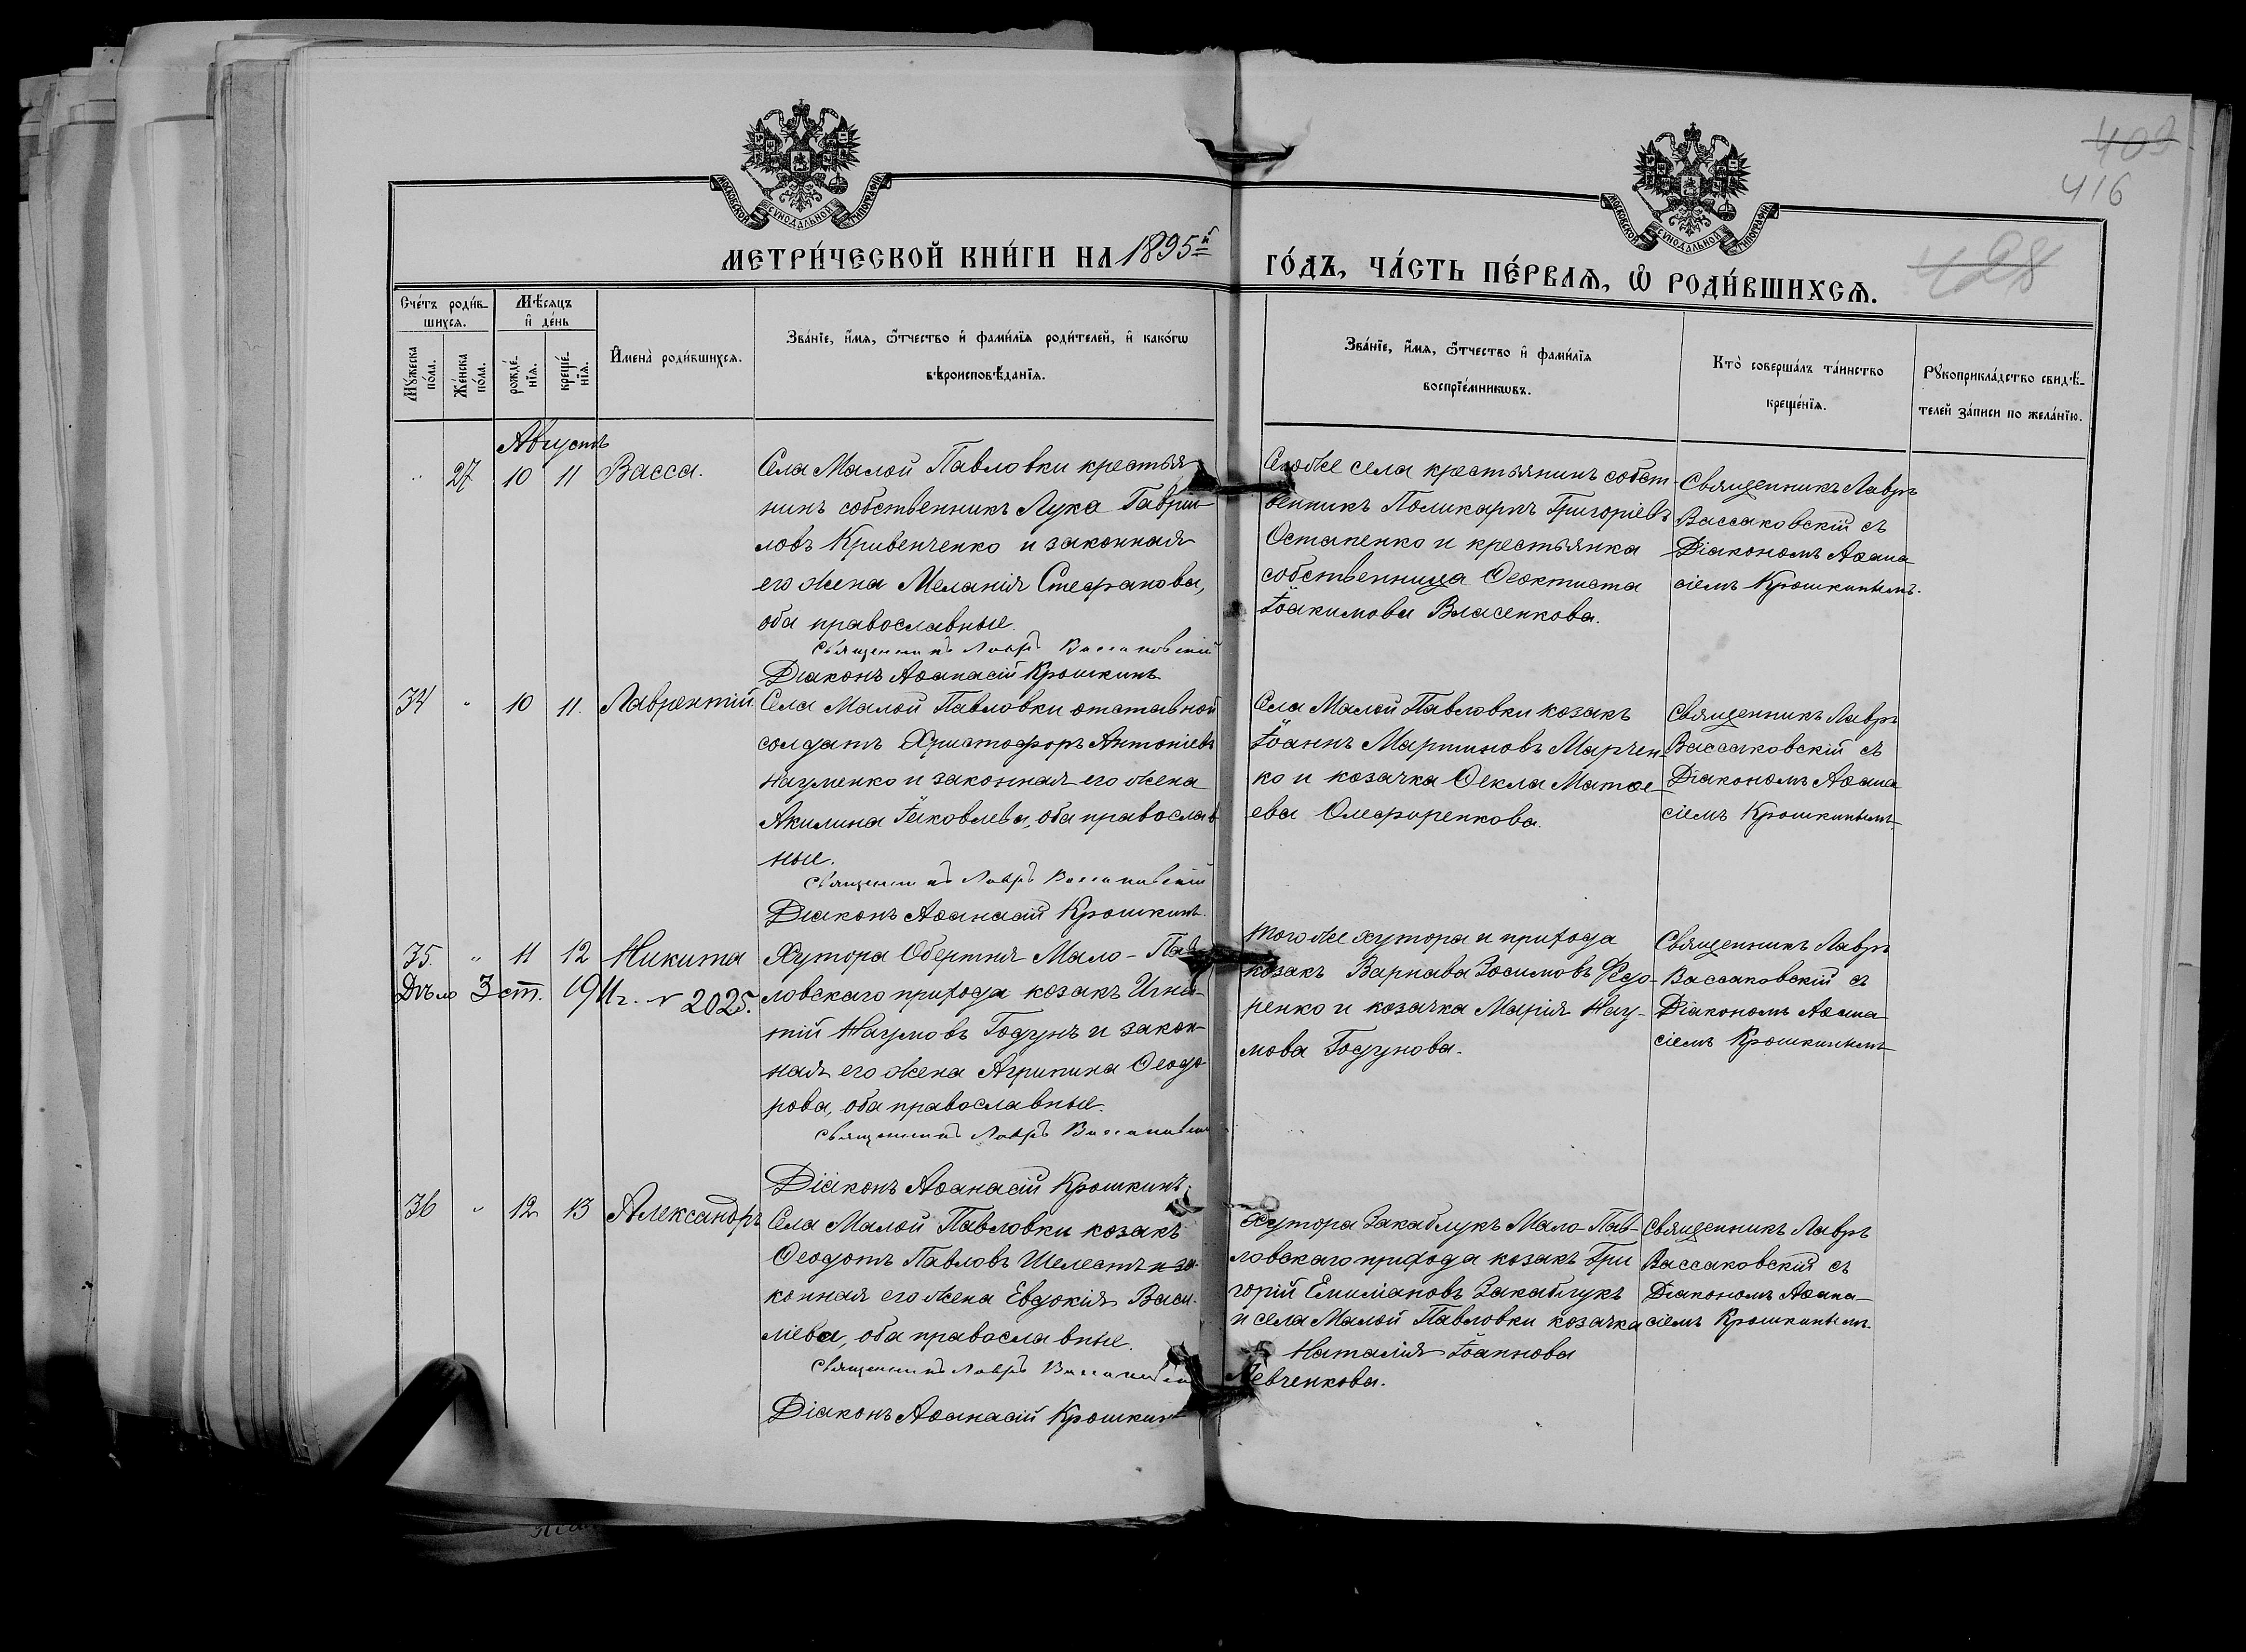 409
416
МОСКОВСКОЙ СѴНОДАЛЬНОЙ ТИПОГРАФІИ
МОСКОВСКОЙ СѴНОДАЛЬНОЙ ТИПОГРАФІИ
МЕТРИ́ЧЕСКОЙ КНИ́ГИ НА 1895й
ГО́ДЪ, ЧА́СТЬ ПЕ́РВАѦ, Ѡ РОДИ́ВШИХСѦ.
428
Сче́тъ роди́в-
шихсѧ.
Мѣ́сѧцъ
и҆ де́нь
Мꙋ́жеска по́ла.
Же́нска по́ла.
рожде́-
нїѧ.
креще́-
нїѧ.
И҆мена̀ роди́вшихсѧ.
Зва́нїе, и҆́мѧ, ѻ҆́тчество и҆ фами́лїѧ роди́телей, и҆ како́гѡ
вѣроисповѣ́данїѧ.
Зва́нїе, и҆́мѧ, ѻ҆́тчество и҆ фами́лїѧ
воспрїе́мникѡвъ.
Кто̀ соверша́лъ та́инство
креще́нїѧ.
Рꙋкоприкла́дство свидѣ́-
телей за́писи по жела́нїю.
Августъ
" 27 10 11 Васса.
Села Малой Павловки крестья
нинъ собственникъ Лука Гаврии
ловъ Кривенченко и законная
его жена Меланія Стефанова,
оба православные.
Священникъ Лавръ Вассаковскій
Діаконъ Аѳанасій Крошкинъ
Сегоже села крестьянинъ собст-
венникъ Поликарпъ Григоріевъ
Остапенко и крестьянка
собственница Ѳеоктиста
Іоакимова Власенкова.
Священникъ Лавръ
Вассаковскій съ
Діакономъ Аѳана
сіемъ Крошкинымъ.
34 " 10 11. Лаврентій.
Села Малой Павловки отставной
солдатъ Христофоръ Антоніевъ
Науменко и законная его жена
Акилина Іаковлева, оба православ
ные.
Священникъ Лавръ Вассаковскій
Діаконъ Аѳанасій Крошкинъ.
Села Малой Павловки козакъ
Іоаннъ Мартиновъ Марчен-
ко и козачка Ѳекла Матѳе-
ева Олефиренкова.
Священникъ Лавръ
Вассаковскій съ
Діакономъ Аѳана
сіемъ Крошкинымъ
35. " 11 12 Никита
Дѣло 3 ст. 1911г. № 2025.
Хутора Обертня Мало-Пав
ловскаго прихода козакъ Игна-
тій Наумовъ Годунъ и закон-
ная его жена Агрипина Ѳеодо
рова, оба православные.
Священникъ Лавръ Вассаковскій
Діаконъ Аѳанасій Крошкинъ.
Того же хутора и прихода
козакъ Варнава Зосимовъ Федо-
ренко и козачка Марія Нау-
мова Годунова.
Священникъ Лавръ
Вассаковскій съ
Діакономъ Аѳана
сіемъ Крошкинымъ
36 " 12 13 Александръ
Села Малой Павловки козакъ
Ѳеодотъ Павловъ Шелестъ и за-
конная его жена Евдокія Васи-
ліева, оба православные.
Священникъ Лавръ Вассаковскій
Діаконъ Аѳанасій Крошкинъ
Хутора Закаблукъ Мало-Пав-
ловскаго прихода козакъ Гри
горій Емиліановъ Закаблукъ
и села Малой Павловки козачка
Наталія Іоаннова
Левченкова.
Священникъ Лавръ
Вассаковскій съ
Діакономъ Аѳана-
сіемъ Крошкинымъ.